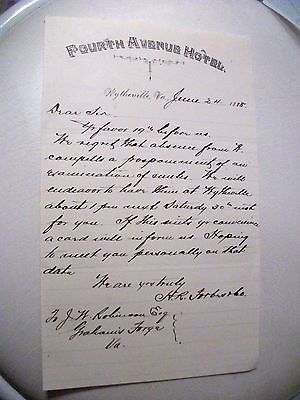 FOURTH AVENUE HOTEL.
Wytheville, Va, June 24 1885
Dear Sir
Yr favor 19th before us.
We regret that absence from
compells a postponement of an
examination of mules. We will
endeavor to have them at Wytheville
about 1 pm next Saturday
for you. If this suits yr convenience
a card will inform us. Hoping
to meet you personally on that
date
We are yrs truly
To J. W. Robinson Esq
Grahams Forge
Va.